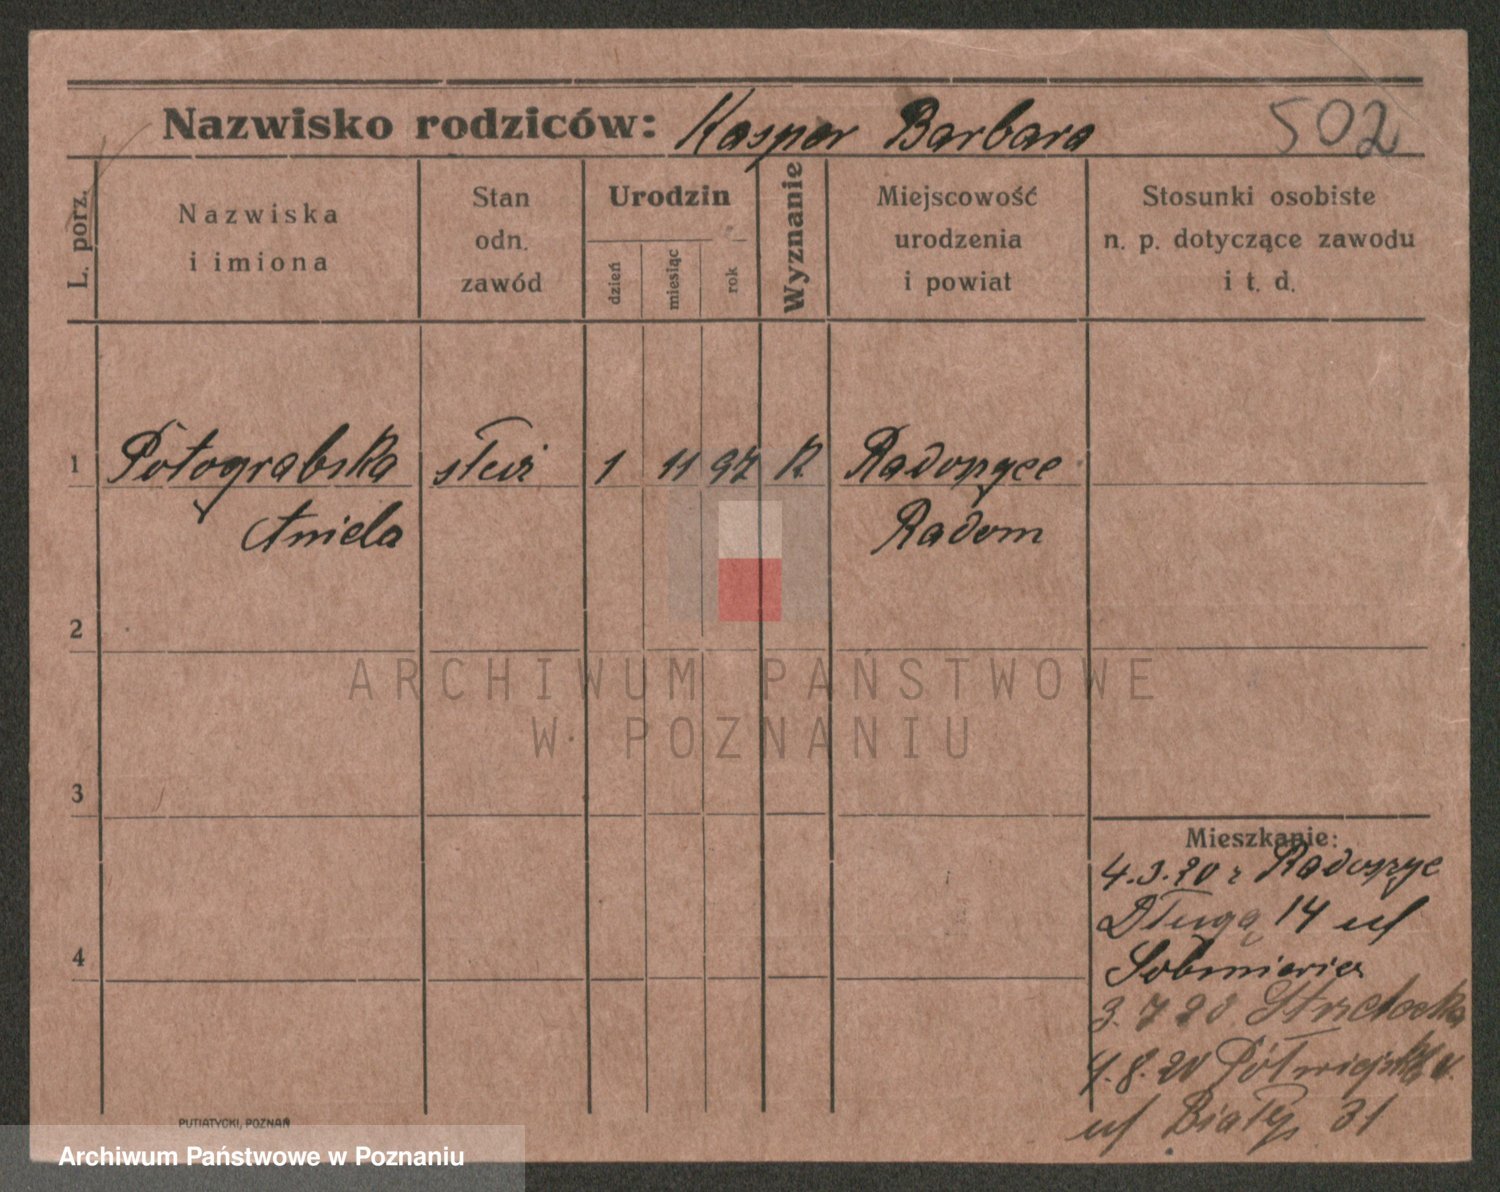 Nazwisko rodziców: Kasper Barbara 502
L. porz.
Nazwiska
i imiona
Stan
odn.
zawód
Urodzin
dzień
miesiąc
rok
Wyznanie
Miejscowość
urodzenia
i powiat
Stosunki osobiste
n. p. dotyczące zawodu
i t. d.
1 Potograbska służ 1 11 97 K Radoszyce
Aniela Radom
2
ARCHIWUM PAŃSTWOWE
W POZNANIU
3
Mieszkanie:
4.3.20 z Radoszyc
Długa 14 uf
4
3.7 20 Strzelecka
4.8.20 Półwiejska
uf Biały 31
PUTIATYCKI, POZNAŃ
Archiwum Państwowe w Poznaniu